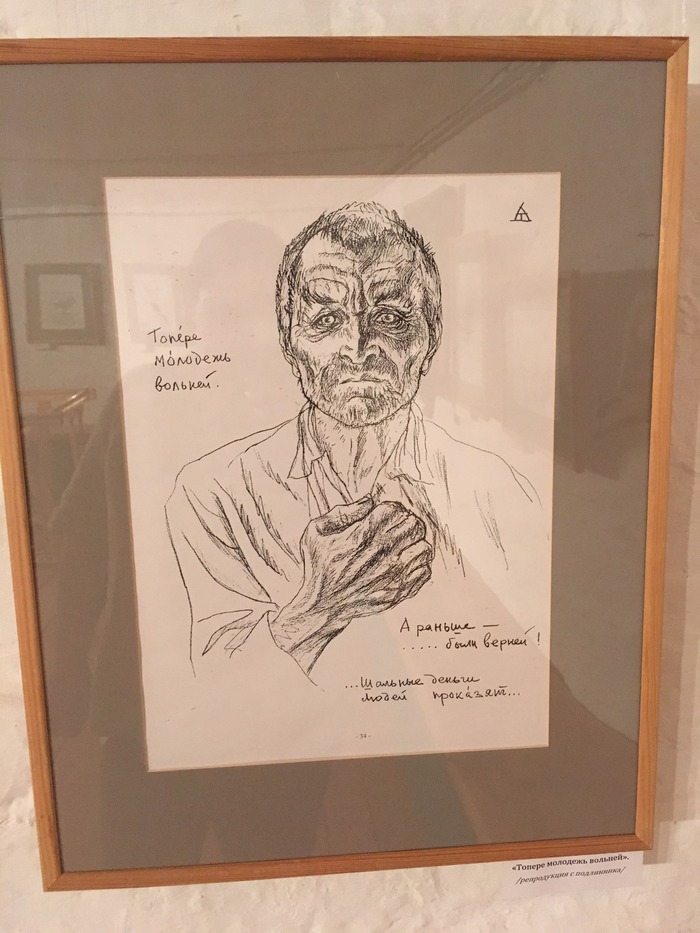 Топе́ре
мо́лодежь
вольней.
А раньше —
..... были верней!
...Шальные деньги
людей прока́зят...
- 34 -
«Топере молодежь вольней».
/репродукция с подлинника/